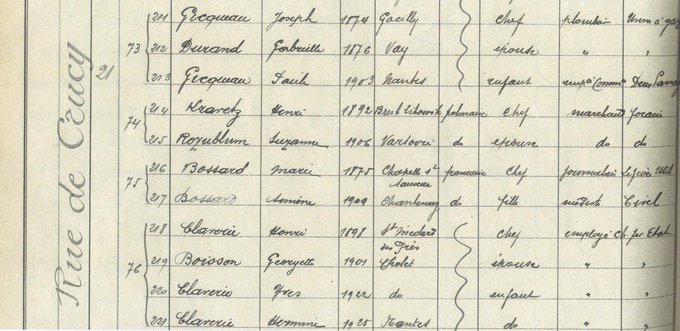 Rue de Crucy
21
211 Gicqueau Joseph 1874 Gacilly chef plombier Usine à gaz
73 212 Durand Gabrielle 1876 Vay épouse " "
213 Gicqueau Paule 1903 Nantes enfant
74 214 Kravetz Henri 1892 Brest Litowsk polonaise chef marchand forain
215 Rozublum Suzanne 1906 Varsovie do épouse do do
75 216 Bossard Marie 1875 Chapelle St Sauveur française chef journalière Lefèvre Utile
217 Bossard 1909 Chantenay do fille modiste
218 Claverie Henri 1898 St Médard des Prés chef employé Ch. fer Etat
76 219 Boisson Georgette 1901 Cholet épouse " "
220 Claverie Yves 1922 do enfant " "
221 Claverie Hermine 1925 Nantes do " "